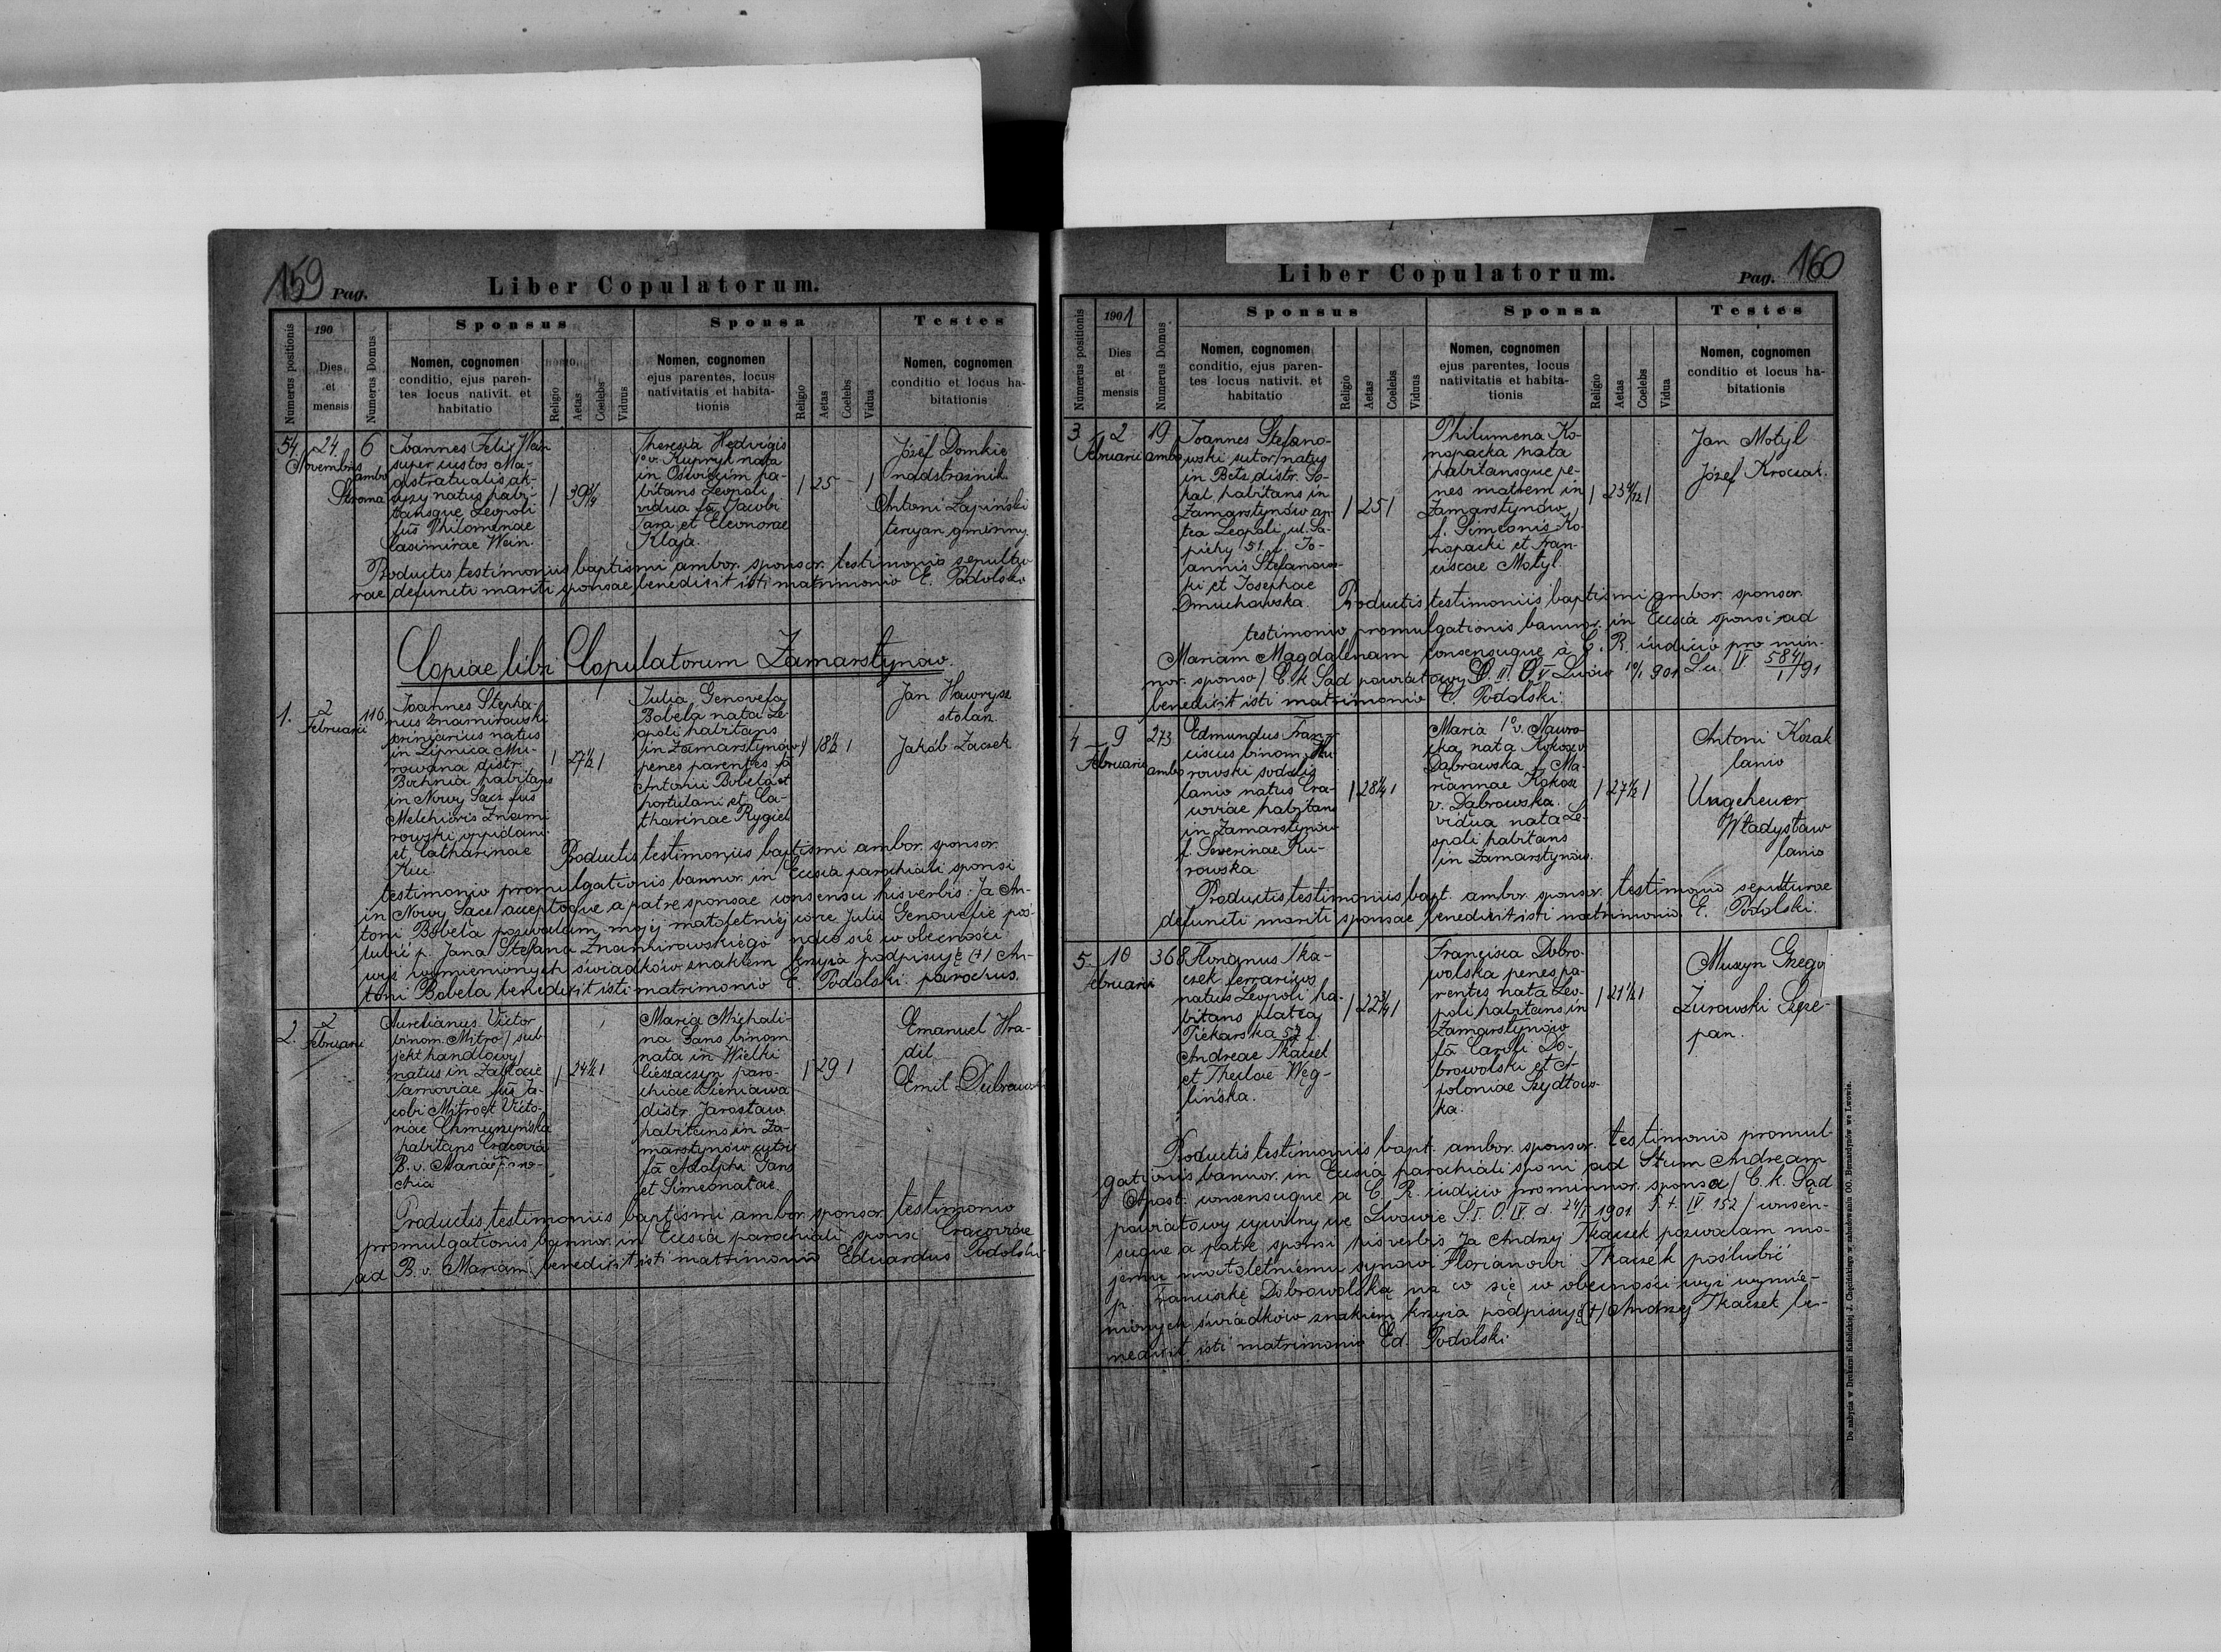 159 Pag.
Liber Copulatorum.
Numerus positionis
190
Dies
et
mensis
Numerus Domus
Sponsus
Nomen, cognomen
conditio, ejus paren-
tes locus nativit. et
habitatio
Religio
Aetas
Coelebs
Viduus
Sponsa
Nomen, cognomen
ejus parentes, locus
nativitatis et habita-
tionis
Religio
Aetas
Coelebs
Vidua
Testes
Nomen, cognomen
conditio et locus ha-
bitationis
54.
24.
Novembris
6
ambo
Joannes Felix Wein
super custos Ma-
gistratualis ak-
cyzy natus habi-
tansque Leopoli
fus Philomenae
Casimirae Wein.
1
Theresia Hedvigis
1o v. Kupryk nata
in Oświęcim ha-
bitans Leopoli
vidua fa Jacobi
Para et Eleonorae
Klaja.
1 25 1
Józef Domkie
nadstrażnik
Antoni Łapiński
gminny.
Productis testimoniis baptismi ambor. sponsor. testimonio sepultu-
rae defuncti mariti sponsae benedixit isti matrimonio E. Podolski
Copiae libri Copulatorum Zamarstynów.
1.
2
Februarii
116
Joannes Stepha-
nus Znamirowski
natus
in Lipnica Mu-
rowana distr.
Bochnia habitans
in Nowy Sącz fus
Melchioris Znami
rowski oppidani
et Catharinae
Kuc.
1 27½ 1
Julia Genovefa
Bobela nata Le-
opoli habitans
in Zamarstynów
penes parentes fa
Antonii Bobela et
hortulani et Ca-
tharinae Rygiel
1 18½ 1
Jan Hawrysz
stolarz
Jakób Zaczek
Productis testimoniis baptismi ambor. sponsor.
testimonio promulgationis bannor. in Ecclsia parochiali sponsi
in Nowy Sącz acceptoque a patre sponsae consensu his verbis: Ja An-
toni Bobela pozwalam mojej małoletniej córce Julii Genowefie poś-
lubić p. Jana Stefana Znamirowskiego na co się w obecności
wyż wymienionych świadków znakiem krzyża podpisuję (+) An-
toni Bobela benedixit isti matrimonio E. Podolski parochus.
2.
2
Februarii
Aurelianus Victor
binom. Mitro / sub-
jekt handlowy /
natus in
Tarnoviae fus Ja-
cobi Mitro et Victo-
riae Chmurzyńska
habitans Cracoviae
B. v. Mariae paro-
chia
1 24½ 1
Maria Michali-
na Gans binom
nata in Wielki
paro-
chiae Sieniawa
distr. Jarosław
habitans in Za-
marstynów
fa Adolphi Gans
et
1 29 1
Emanuel Hra-
dil
Emil
Productis testimoniis baptismi ambor. sponsor. testimonio
promulgationis bannor. in Ecclsia parochiali sponsi Cracoviae
ad B. v. Mariam benedixit isti matrimonio Eduardus Podolski
Liber Copulatorum.
Pag. 160
Numerus positionis
1901
Dies
et
mensis
Numerus Domus
Sponsus
Nomen, cognomen
conditio, ejus paren-
tes locus nativit. et
habitatio
Religio
Aetas
Coelebs
Viduus
Sponsa
Nomen, cognomen
ejus parentes, locus
nativitatis et habita-
tionis
Religio
Aetas
Coelebs
Vidua
Testes
Nomen, cognomen
conditio et locus ha-
bitationis
3
2
Februarii
19
ambo
Joannes Stefano-
wski sutor / natus
in Bełz distr. So-
kal habitans in
Zamarstynów an-
tea Leopoli ul. Sa-
piehy 51 f. Jo-
annis Stefanows-
ki et Josephae
Dmuchowska.
1 25 1
Philumena Ko-
nopacka nata
habitansque pe-
nes matrem in
Zamarstynów
f. Simeonis Ko-
nopacki et Fran-
ciscae Motyl.
1 23 1
Jan Motyl
Józef Kroczak.
Productis testimoniis baptismi ambor. sponsor.
testimonio promulgationis bannor. in Ecclsia sponsi ad
Mariam Magdalenam consensuque à C. R. iudicio pro min-
nor. sponso / C. k. Sąd powiatowy
benedixit isti matrimonio E. Podolski.
4
9
Februarii
273
ambo
Edmundus Fran-
ciscus binom. Ku-
rowski sodalis
lanio natus Cra-
coviae habitans
in Zamarstynów
f. Severinae Ku-
rowska
1 28¼ 1
Maria 1o v. Nawro-
cka nata Kokosz v.
Dąbrowska f. Ma-
riannae Kokosz
v. Dąbrowska.
vidua nata Le-
opoli habitans
in Zamarstynów.
1 27½ 1
Antoni Kozak
lanio
Ungeheuer
Władysław
lanio
Productis testimoniis bapt. ambor. sponsor. testimonio sepulturae
defuncti mariti sponsae benedixit isti matrimonio. E. Podolski.
5.
10
Februarii
368
Florianus Tka-
czek ferrarius
natus Leopoli ha-
bitans platea
Piekarska 52 f.
Andreae Tkaczek
et Theclae Węg-
lińska.
1 22¾ 1
Francisca Dobro-
wolska penes pa-
rentes nata Leo-
poli habitans in
Zamarstynów
fa Caroli Do-
browolski et A-
poloniae Szydłows-
ka.
1 21½ 1
Muszyn Grzegó
Żurawski Szcze-
pan.
Productis testimoniis bapt. ambor. sponsor. testimonio promul-
gationis bannor. in Ecclsia parochiali sponsi ad Stum Andream
Apost. consensuque a C. R. iudicio pro minnor. sponsa / C. k. Sąd
powiatowy cywilny we Lwowie S. I. O. IV. d. 24/I 1901 P. t. IV 152 / consen-
suque a patre sponsi his verbis Ja Andrzej Tkaczek pozwalam mo-
jemu małoletniemu synowi Florianowi Tkaczek poślubić
p. Franciszkę Dobrowolską na co się w obecności wyż wymie-
nionych świadków znakiem krzyża podpisuję (+) Andrzej Tkaczek be-
nedixit isti matrimonio Ed. Podolski
Do nabycia w Drukarni Katolickiej J. Chęcińskiego w zabudowaniu OO. Bernardynów we Lwowie.